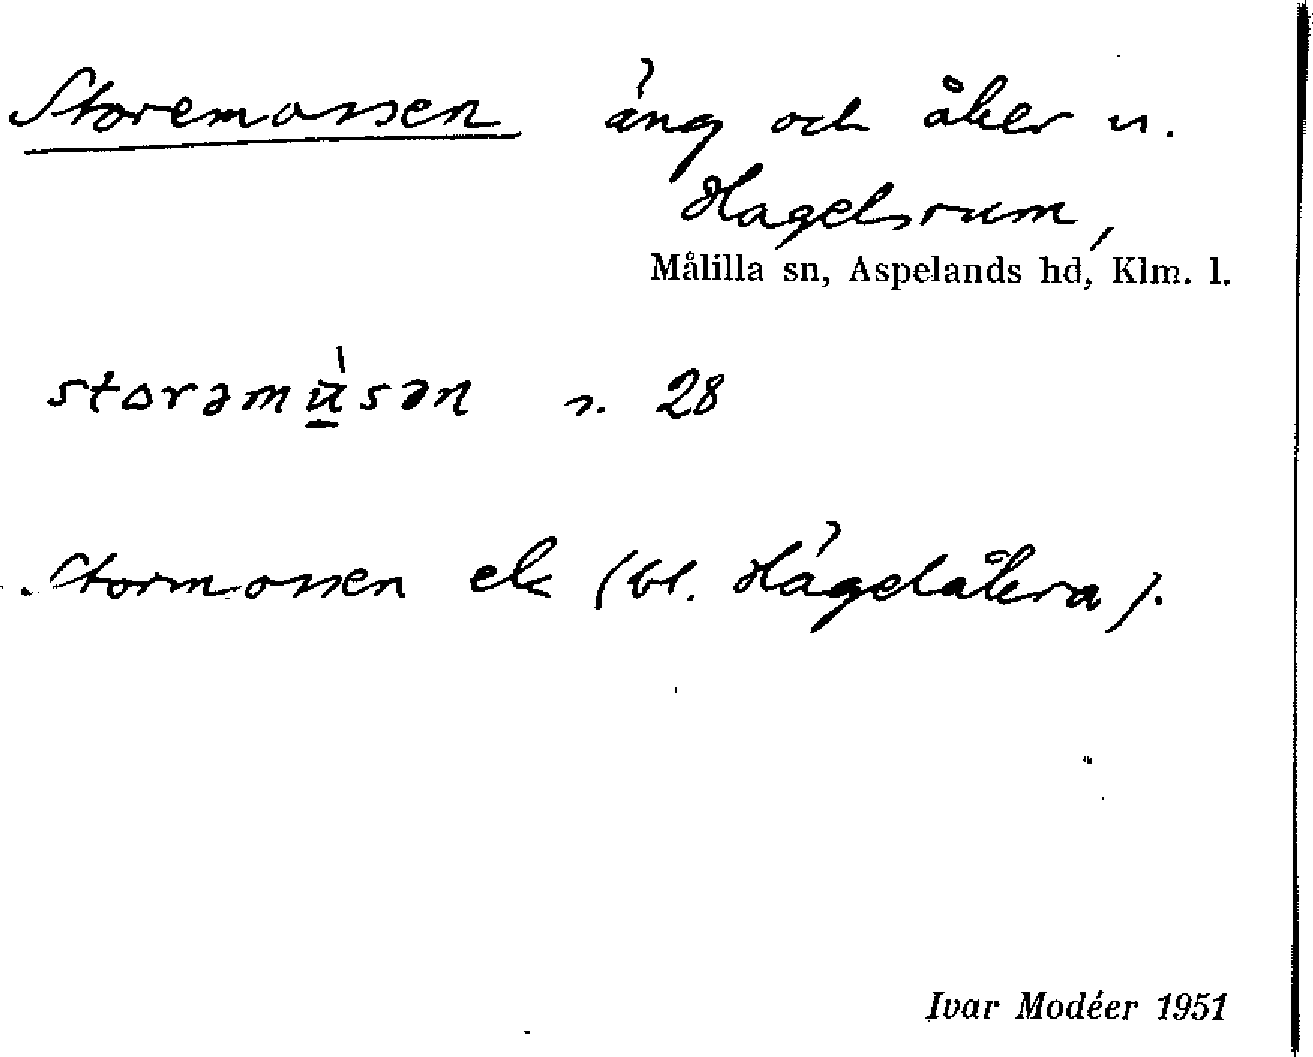 Storemossen äng och åker u.
Hagelsrum,
Målilla sn, Aspelands hd, Klm. l.
storəmùsən s. 28
Stormossen ek (bl. Hägdåkra).
Ivar Modéer 1951